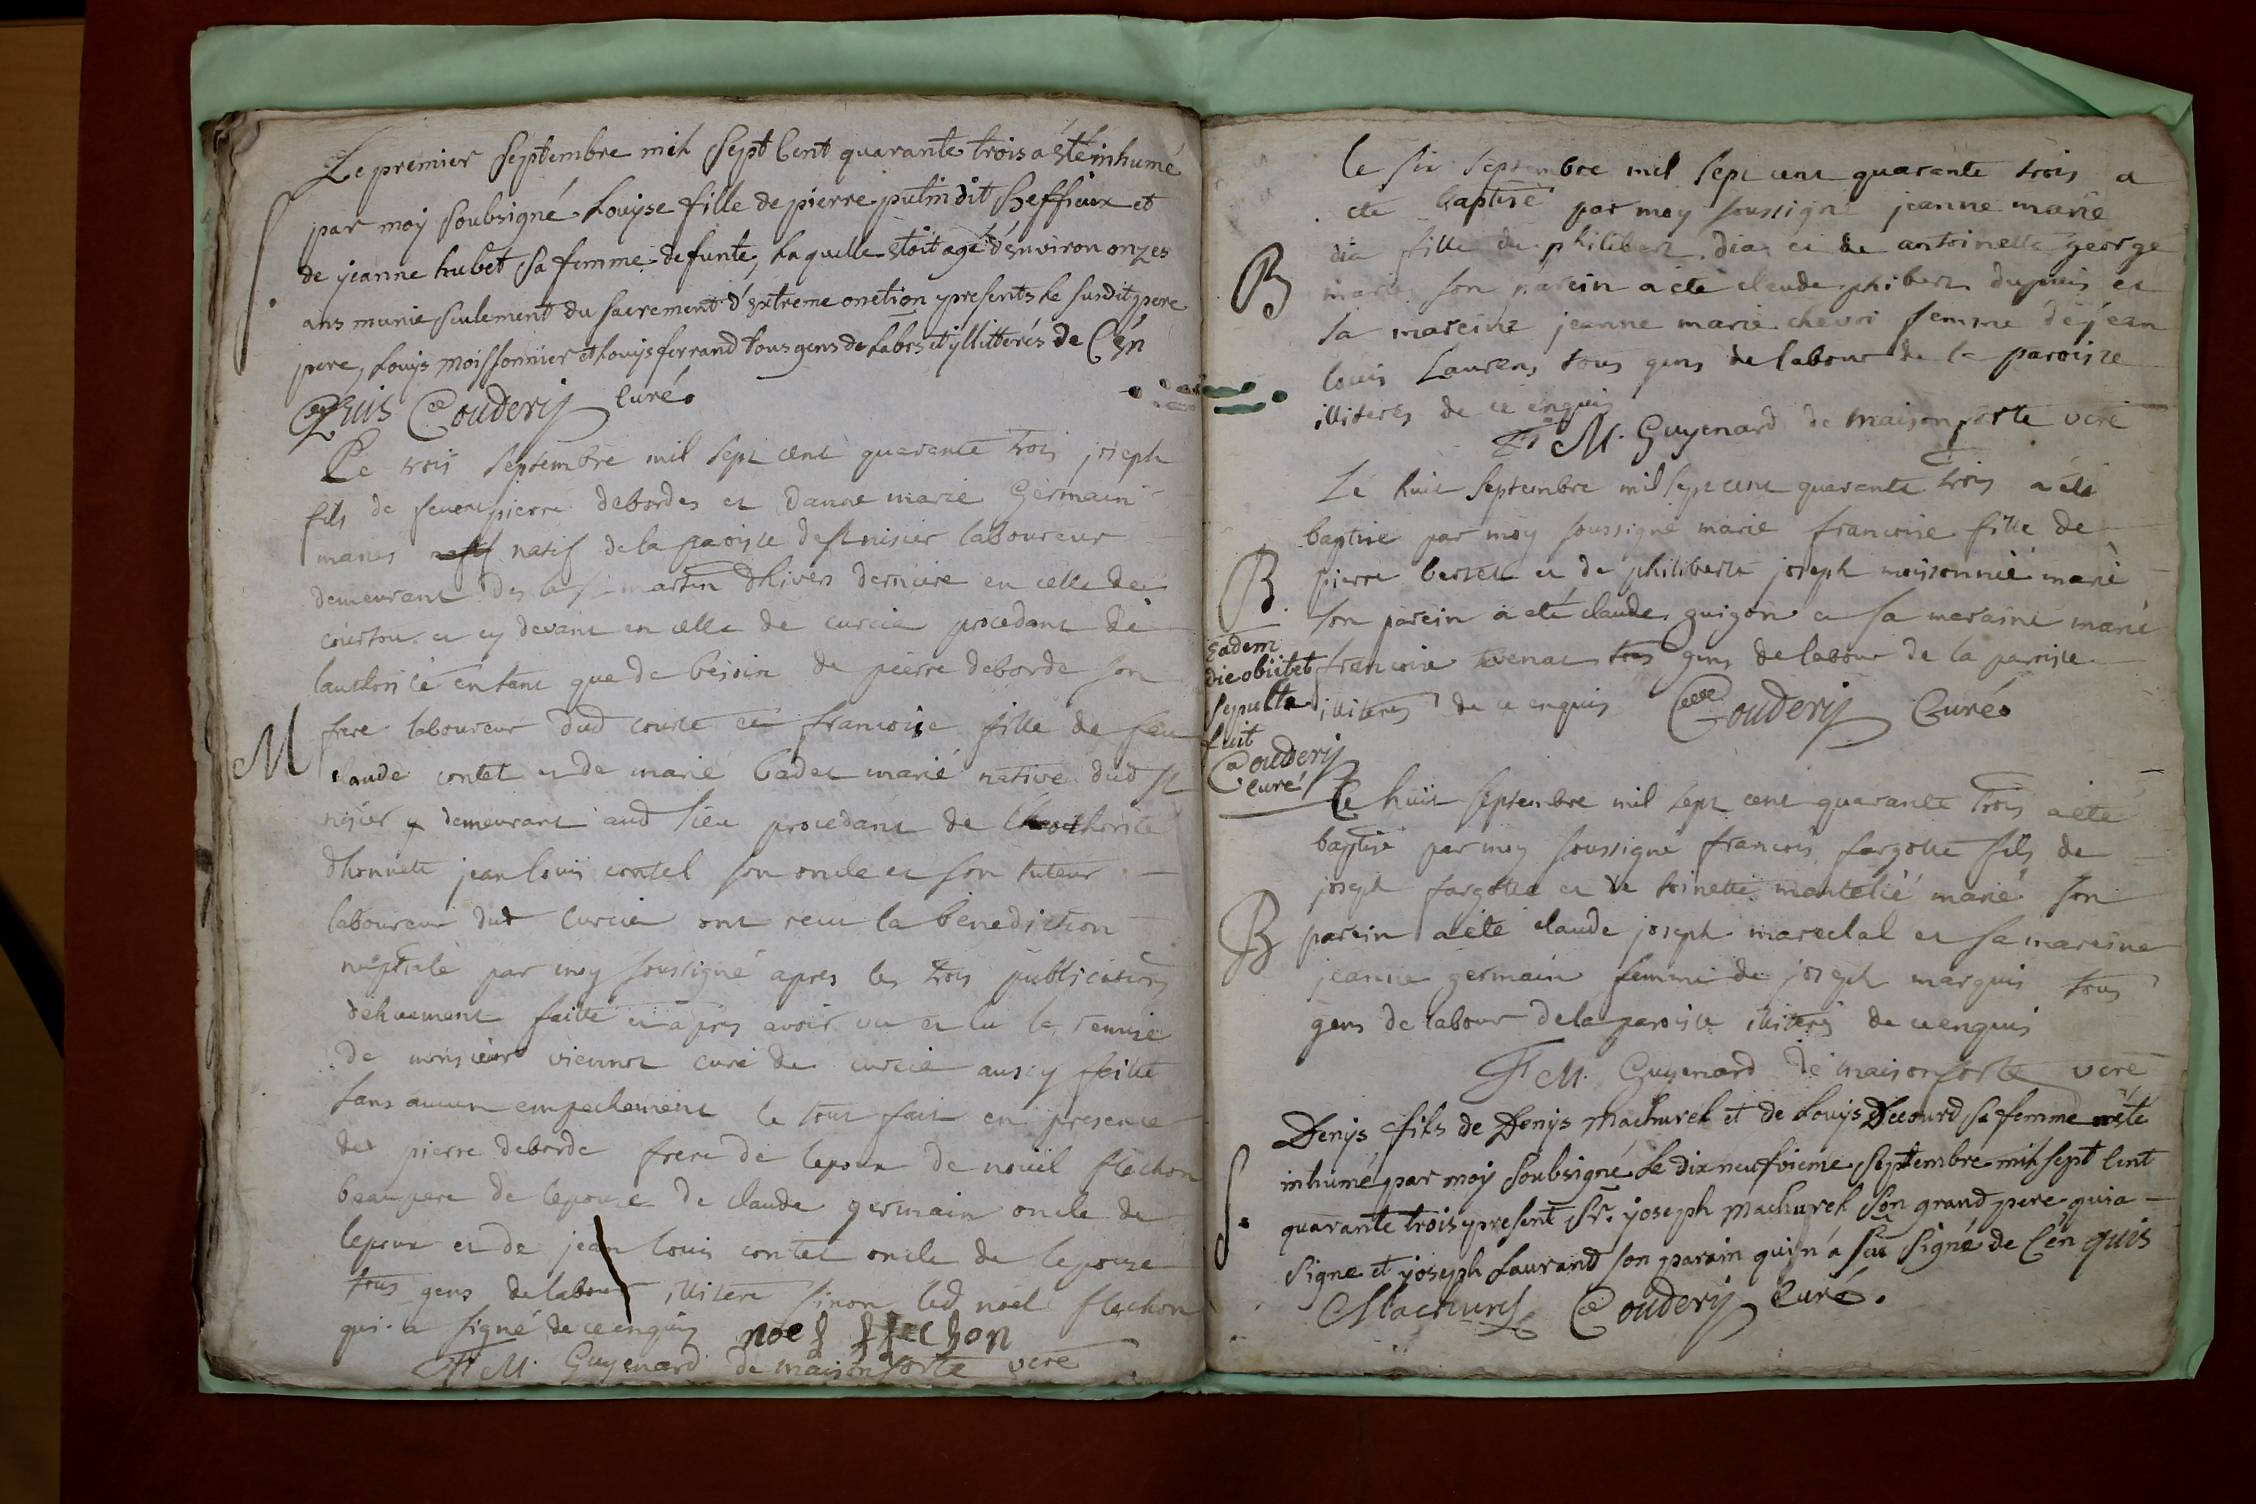 Le premier septembre mil sept Cent quarante trois a été inhumé
S.
par moy soubsigné Louyse fille de pierre putin dit Seffieux et
de jeanne hubet sa femme defunte, Laquelle etoit agé d'environ onzes
ans munie seulement du sacrement d'extreme onction presents le susdit pere
pere, Louys moissonnier et Louys ferrand tous gens de Labrs et yllitterés de Cén
Quis Couderij Curé.
Le trois septembre mil sept cent quarante trois joseph
fils de pierre debordes et danne marie Germain
maries natif de la paroisse de st nisier laboureur
demeurant des la st martin dhivers derniere en celle de
courtou et cy devant en celle de curcie procedant de
lauthorité entant que de besoin de pierre deborde son
M
frere laboureur dud court et francoise fille de feu
claude contet et de marie badet marié native dud st
nisier y demeurant aud lieu procedant de lhorité
dhonnete jean louis contel son oncle et son tuteur
laboureur dud Curcie ont recu la benediction
nuptiale par moy soussigné apres les trois publications
dehuement faitte et apres avoir vu et lu la remise
de monsieur viennot curé de curcie aussy faitte
sans aucun empechement le tout fait en presence
de pierre deborde frere de lepoux de nouel flechon
beaupere de lepouse de claude germain oncle de
lepoux et de jean louis contet oncle de lepouse
tous gens de labour illitere sinon led noel flechon
qui a signé de ce enquis noel flechon
F M. Guyenard de maisonforte vere
le six septembre mil sept cent quarante trois a
ete baptisé par moy soussigné jeanne marie
B
dia fille de philibert dia et de antoinette george
marié son parein a eté claude phibert dupuis et
sa mareine jeanne marie chevri femme de jean
louis Laurens tous gens de labour de la paroisse
illiterés de ce enquis
F M. Guyenard de maisonforte vere
Le huit septembre mil sept cent quarante trois a été
baptise par moy soussigné marie francoise fille de
B
pierre berset et de philiberte joseph moissonnié marié
son parein a eté claude guigon et sa maraine marie
francoise tevenat tous gens de labour de la paroisse
illiterés de ce enquis Couderij Curé.
Eadem
die obiit et
sepulta
fuit
Couderij
curé
Le huit septembre mil sept cent quarante trois a eté
baptisé par moy soussigné francois fargotte fils de
joseph fargotte et de toinette mantelié marié son
B
parein a eté claude joseph marechal et sa mareine
jeanne germain femme de joseph marquis tous
gens de labour de la paroisse illiterés de ce enquis
F M. Guyenard de maisonforte vere
Denys fils de Denys Machurel et de Louys Decourd sa femme a été
S.
inhumé par moy soubsigné Le dix neufvieme septembre mil sept Cent
quarante trois present Sr. yoseph Machurel son grand pere qui a
signe et yoseph Laurand son parain qui n'a scu signé de Cén quis
Machurel Couderij Curé.